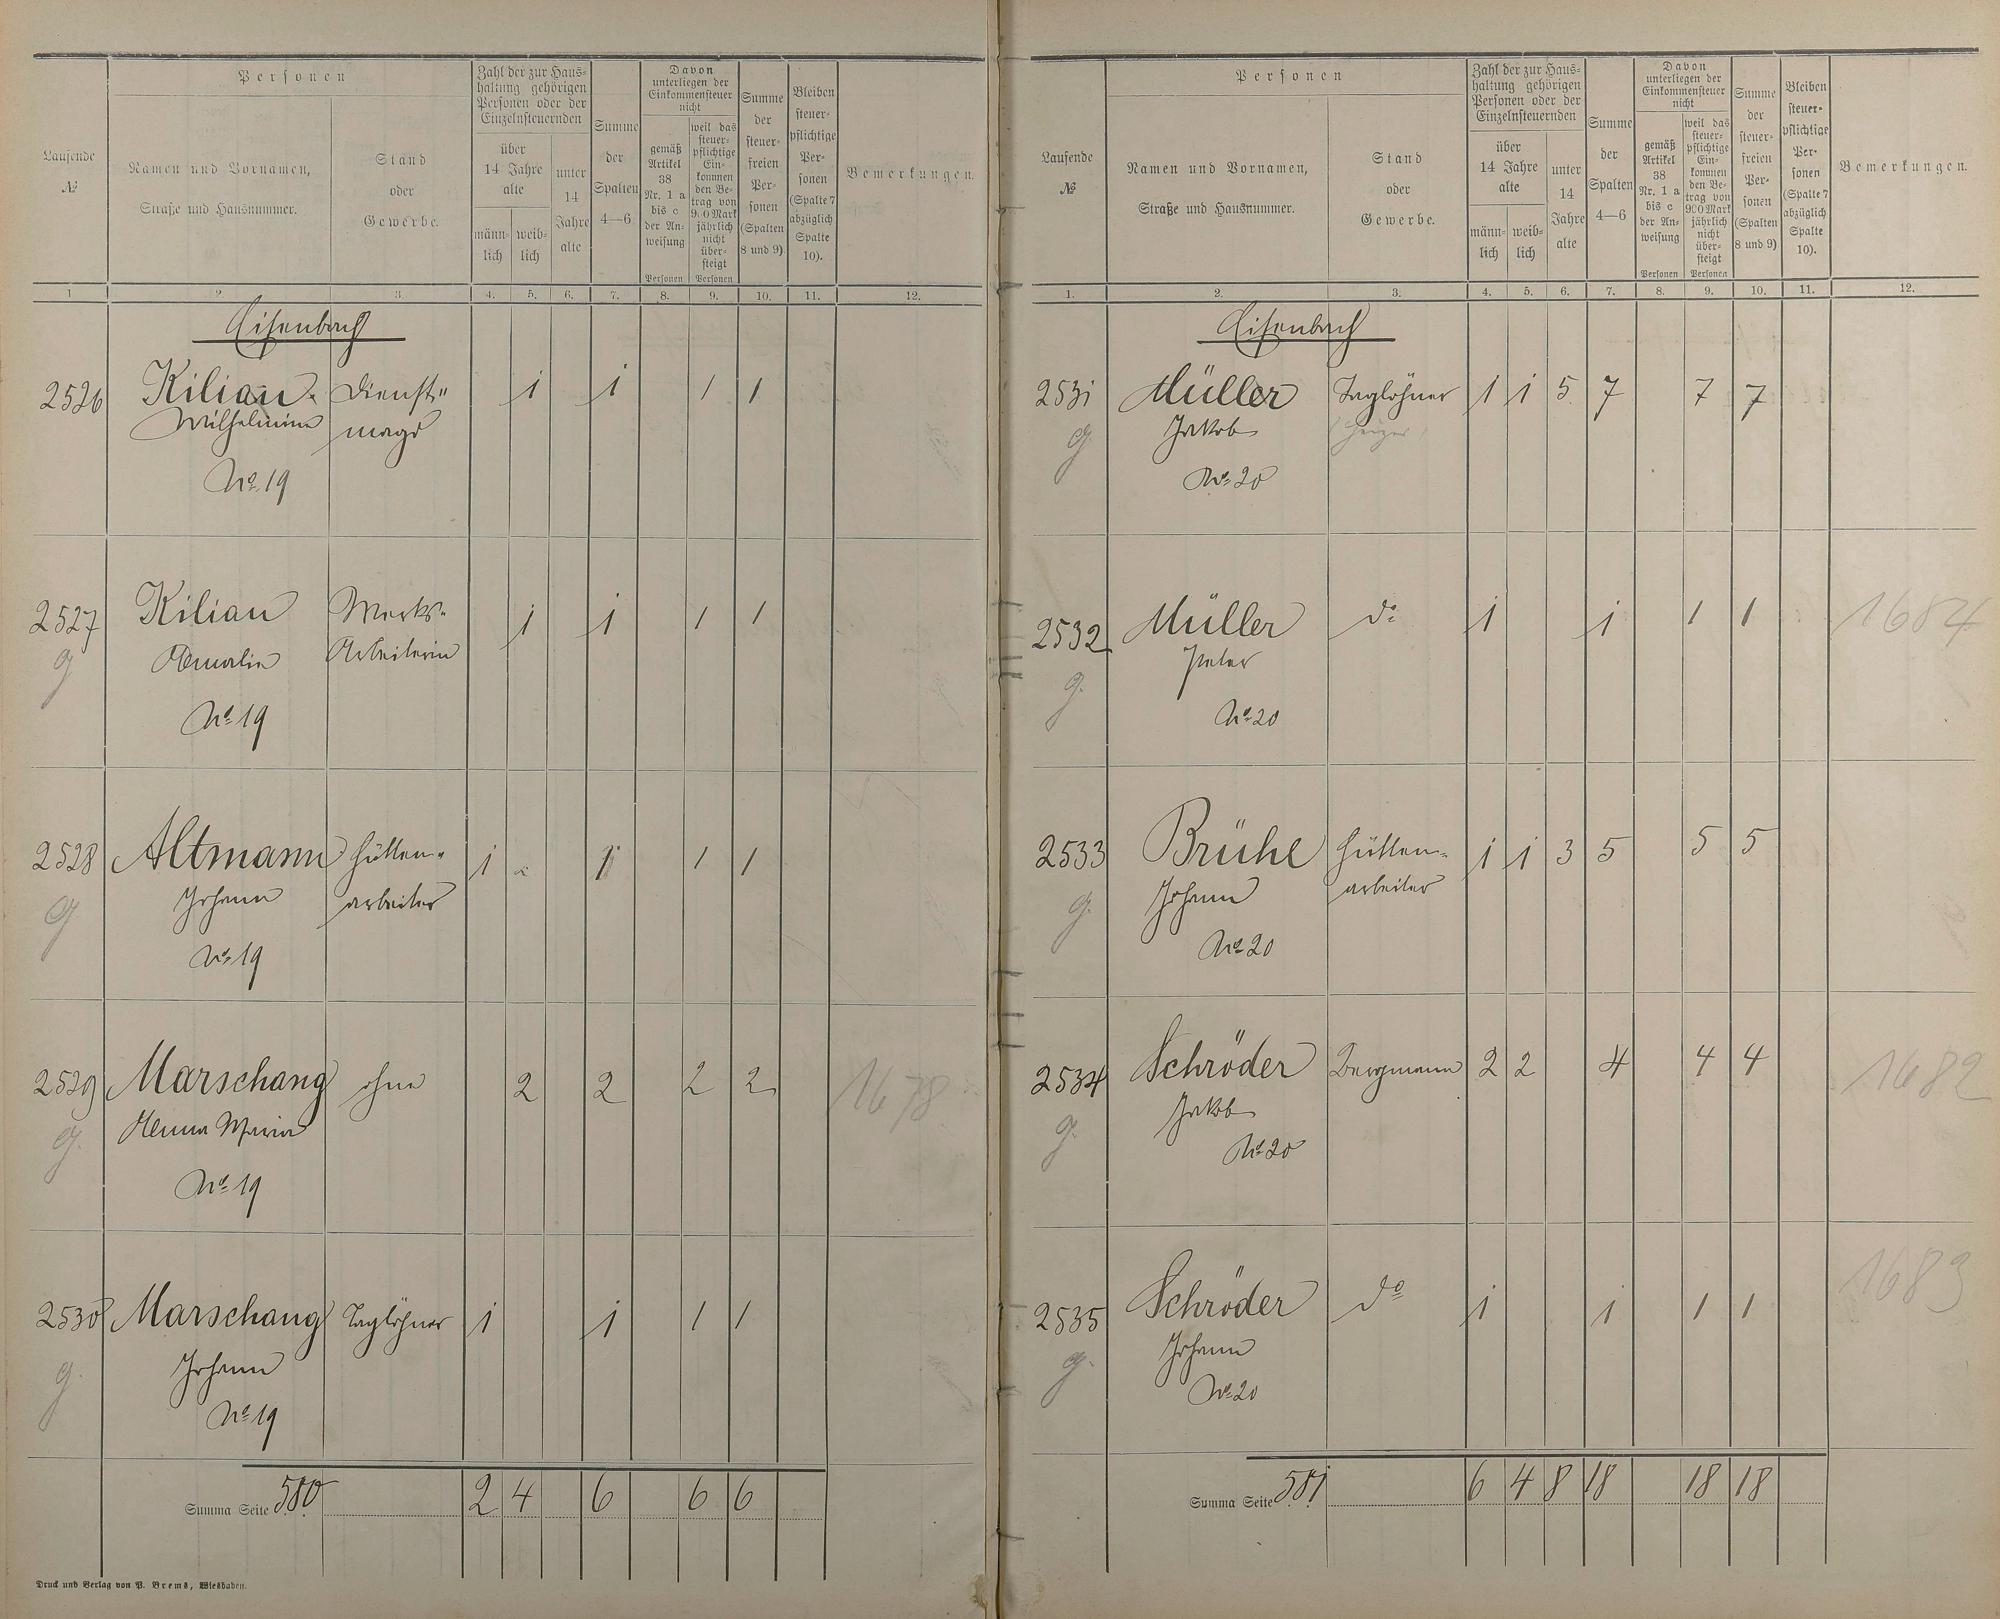 Personen
Laufende
№
Namen und Vornamen,
Straße und Hausnummer.
Stand
oder
Gewerbe.
Zahl der zur Haus-
haltung gehörigen
Personen oder der
Einzelnsteuernden
über
14 Jahre
alte
männ-
lich
weib-
lich
unter
14
Jahre
alte
Summe
der
Spalten
4—6
Davon
unterliegen der
Einkommensteuer
nicht
gemäß
Artikel
38
Nr. 1 a
bis c
der An-
weisung
Personen
weil das
steuer-
pflichtige
Ein-
kommen
den Be-
trag von
900 Mark
jährlich
nicht
über-
steigt
Personen
Summe
der
steuer-
freien
Per-
sonen
(Spalten
8 und 9)
Bleiben
steuer-
pflichtige
Per-
sonen
(Spalte 7
abzüglich
Spalte
10).
Bemerkungen.
1. 2. 3. 4. 5. 6. 7. 8. 9. 10. 11. 12.
Eisenbach
2526 Kilian Dienst- 1 1 1 1
Wilhelmine magd
No. 19
2527 Kilian Werks- 1 1 1 1
g Amalie Arbeiterin
No. 19
2528 Altmann Hütten- 1 1 1 1
g Johann arbeiter
No. 19
2529 Marschang ohne 2 2 2 2 1678
g. Anna Maria
No. 19
2530 Marschang Taglöhner 1 1 1 1
g. Johann
No. 19
Summa Seite 580 2 4 6 6 6
Druck und Verlag von P. Brems, Wiesbaden.
Personen
Laufende
№
Namen und Vornamen,
Straße und Hausnummer.
Stand
oder
Gewerbe.
Zahl der zur Haus-
haltung gehörigen
Personen oder der
Einzelnsteuernden
über
14 Jahre
alte
männ-
lich
weib-
lich
unter
14
Jahre
alte
Summe
der
Spalten
4—6
Davon
unterliegen der
Einkommensteuer
nicht
gemäß
Artikel
38
Nr. 1 a
bis c
der An-
weisung
Personen
weil das
steuer-
pflichtige
Ein-
kommen
den Be-
trag von
900 Mark
jährlich
nicht
über-
steigt
Personen
Summe
der
steuer-
freien
Per-
sonen
(Spalten
8 und 9)
Bleiben
steuer-
pflichtige
Per-
sonen
(Spalte 7
abzüglich
Spalte
10).
Bemerkungen.
1. 2. 3. 4. 5. 6. 7. 8. 9. 10. 11. 12.
Eisenbach
2531 Müller Taglöhner 1 1 5 7 7 7
g Jakob (Heizer)
No. 20
2532 Müller do 1 1 1 1 1684
g. Peter
No. 20
2533 Brühe Hütten- 1 1 3 5 5 5
g. Johann arbeiter
No. 20
2534 Schröder Bergmann 2 2 4 4 4 1682
g. Jakob
No. 20
2535 Schröder do 1 1 1 1 1683
g. Johann
No. 20
Summa Seite 581 6 4 8 18 18 18